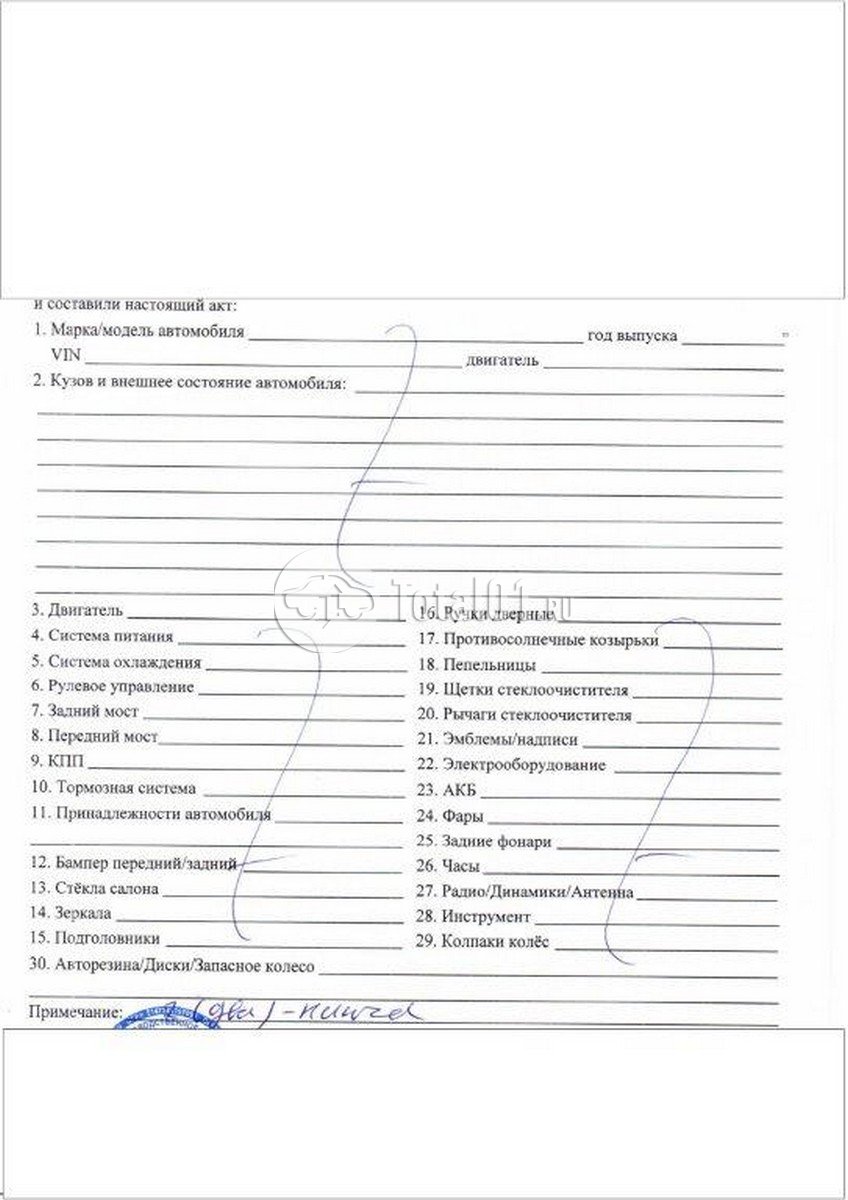 и составили настоящий акт:
1. Марка/модель автомобиля ______ год выпуска ______
VIN ______ двигатель ______
2. Кузов и внешнее состояние автомобиля: ______
Total01.RU
3. Двигатель ______
4. Система питания ______
5. Система охлаждения ______
6. Рулевое управление ______
7. Задний мост ______
8. Передний мост ______
9. КПП ______
10. Тормозная система ______
11. Принадлежности автомобиля ______
12. Бампер передний/задний ______
13. Стёкла салона ______
14. Зеркала ______
15. Подголовники ______
16. Ручки дверные ______
17. Противосолнечные козырьки ______
18. Пепельницы ______
19. Щетки стеклоочистителя ______
20. Рычаги стеклоочистителя ______
21. Эмблемы/надписи ______
22. Электрооборудование ______
23. АКБ ______
24. Фары ______
25. Задние фонари ______
26. Часы ______
27. Радио/Динамики/Антенна ______
28. Инструмент ______
29. Колпаки колёс ______
30. Авторезина/Диски/Запасное колесо ______
Примечание: 2 (два) - ключа